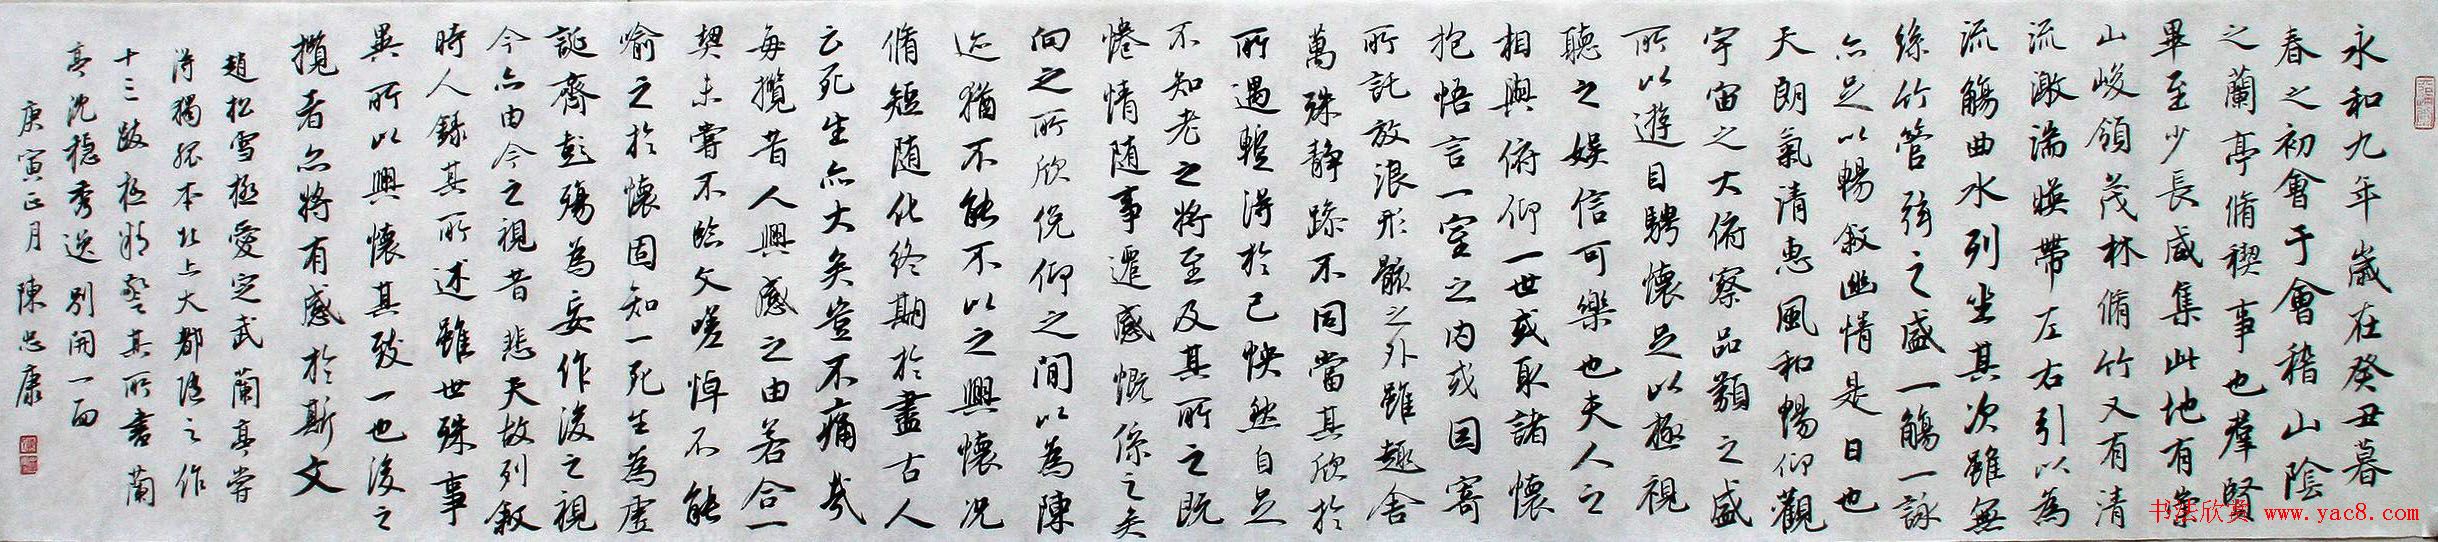 永和九年歲在癸丑暮
春之初會于會稽山陰
之蘭亭脩禊事也羣賢
畢至少長咸集此地有崇
山峻領茂林脩竹又有清
流激湍暎帶左右引以為
流觴曲水列坐其次雖無
絲竹管弦之盛一觴一詠
亦足以暢敘幽情是日也
天朗氣清惠風和暢仰觀
宇宙之大俯察品類之盛
所以遊目騁懷足以極視
聽之娛信可樂也夫人之
相與俯仰一世或取諸懷
抱悟言一室之內或因寄
所託放浪形骸之外雖趣舍
萬殊靜躁不同當其欣於
所遇蹔得於己怏然自足
不知老之將至及其所之既
惓情隨事遷感慨係之矣
向之所欣俛仰之間以為陳
迹猶不能不以之興懷況
脩短隨化終期於盡古人
云死生亦大矣豈不痛哉
每攬昔人興感之由若合一
契未嘗不臨文嗟悼不能
喻之於懷固知一死生為虛
誕齊彭殤為妄作後之視
今亦由今之視昔悲夫故列敘
時人錄其所述雖世殊事
異所以興懷其致一也後之
攬者亦將有感於斯文
趙松雪極愛定武蘭亭嘗
得獨孤本北上大都隨之作
十三跋極精密其所書蘭
亭沈穩秀逸別開一面
庚寅正月陳忠康
书法欣赏 www.yac8.com